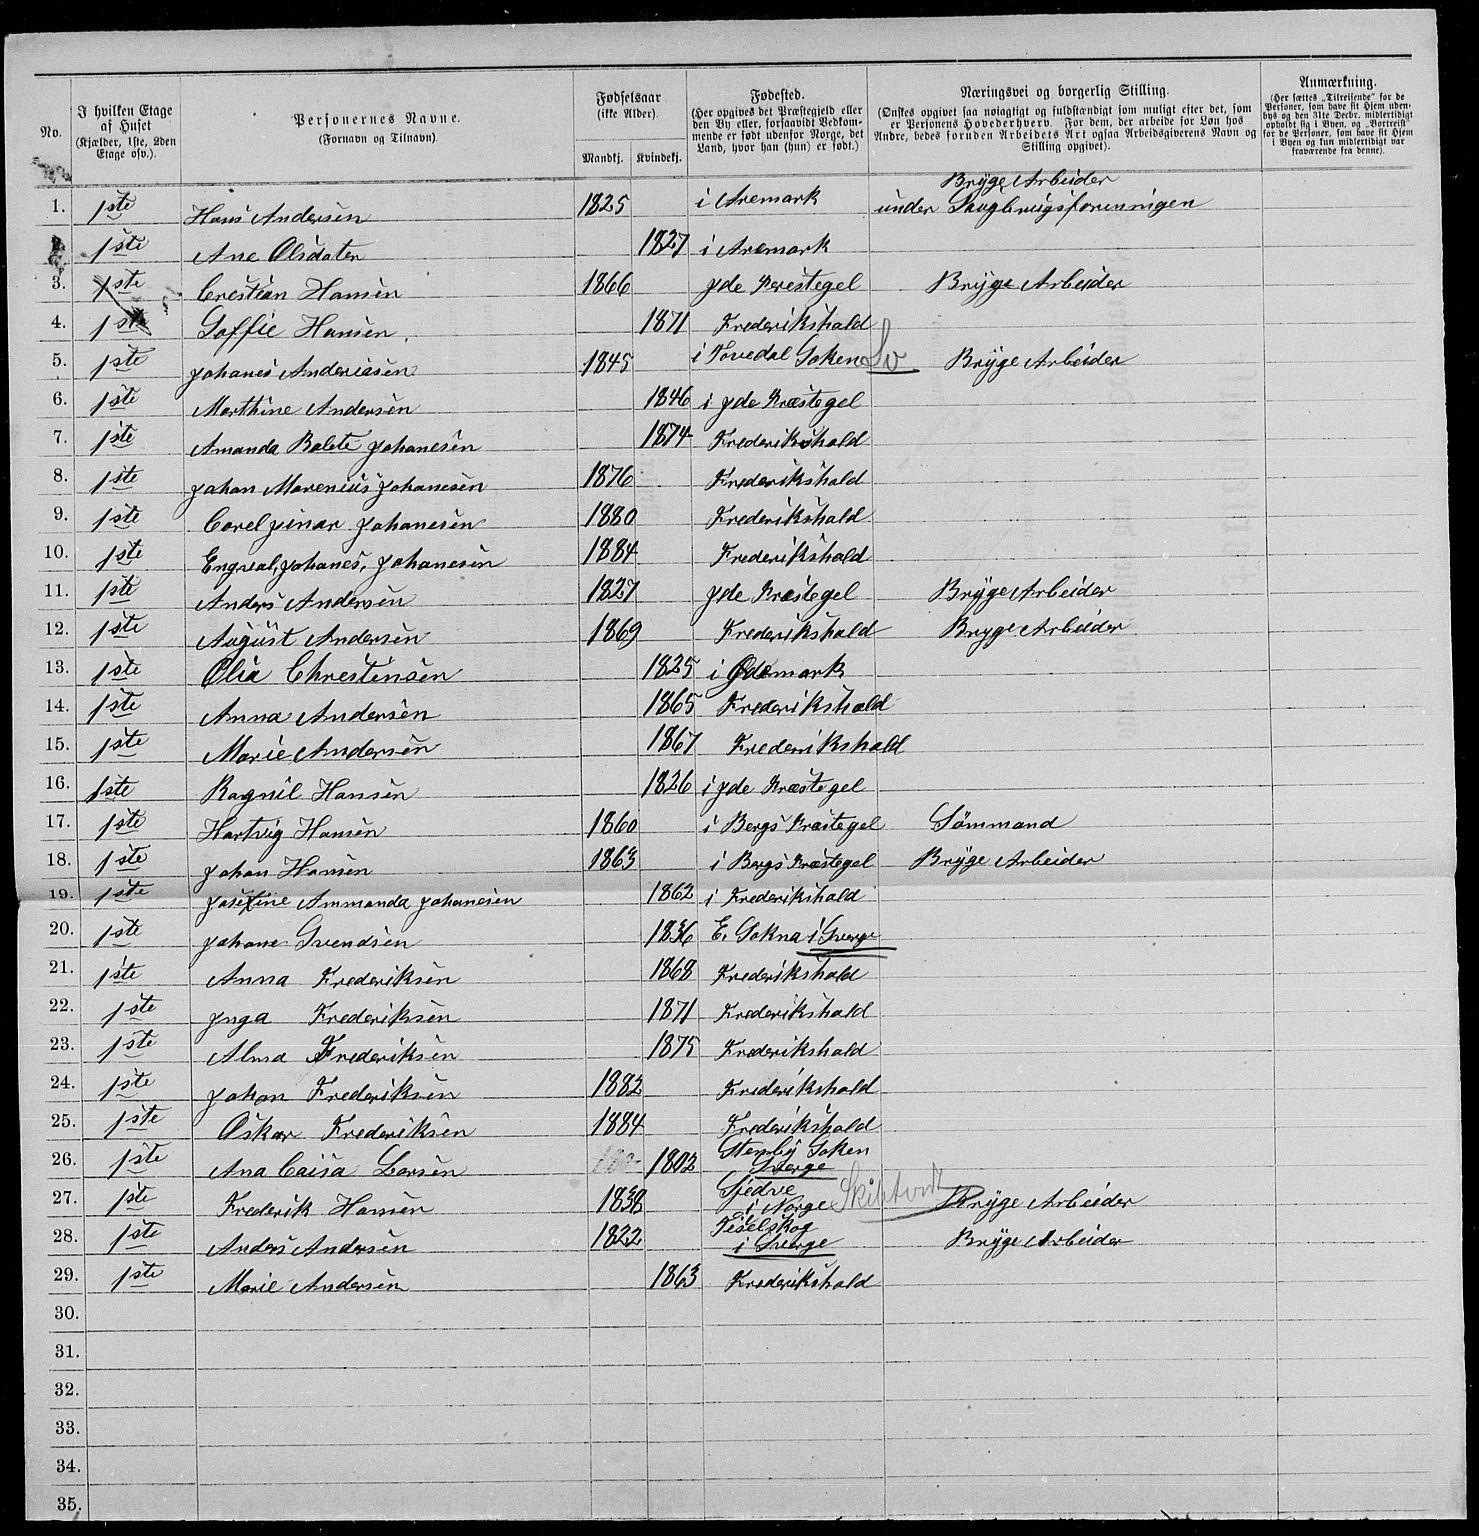 No.
I hvilken Etage
af Huset
(Kjælder, 1ste, 2den
Etage osv.).
Personernes Navne.
(Fornavn og Tilnavn).
Fødselsaar
(ikke Alder).
Mandkj. Kvindekj.
Fødested.
(Her opgives det Præstegjeld eller
den By eller, forsaavidt Vedkom-
mende er født udenfor Norge, det
Land, hvor han (hun) er født.)
Næringsvei og borgerlig Stilling.
(Ønskes opgivet saa nøiagtigt og fuldstændigt som muligt efter det, som
er Personens Hovederhverv. For dem, der arbeide for Løn hos
Andre, bedes foruden Arbeidets Art ogsaa Arbeidsgiverens Navn og
Stilling opgivet).
Anmærkning.
(Her sættes „Tilreisende“ for de
Personer, som have sit Hjem uden-
bys og den 31te Decbr. midlertidigt
opholdt sig i Byen, og „Bortreist“
for de Personer, som have sit Hjem
i Byen og kun midlertidigt var
fraværende fra denne).
Brÿge Arbeider
1. 1ste Hans Andersen 1825 i Aremark under Saugbrugsforeningen
1ste Ane Olsdater 1827 i Aremark
3. 1ste Crestian Hansen 1866 jde Perestegel Brÿge Arbeider
4. 1ste Soffie Hansen 1871 Frederikshald
5. 1ste Johanes Anderiasen 1845 i Tovedal Soken Sv Brÿge Arbeider
6. 1ste Marthine Andersen 1846 i jde Præstegel
7. 1ste Amanda Balete Johanesen 1874 Frederikshald
8. 1ste Johan Marenius Johanesen 1876 Frederikshald
9. 1ste Carel jinar Johanesen 1880 Frederikshald
10. 1ste Engval, Johanes, Johanesen 1884 Frederikshald
11. 1ste Anders Andersen 1827 jde Præstegel Brÿge Arbeider
12. 1ste August Andersen 1869 Frederikshald Bryge Arbeider
13. 1ste Olia Chrestensen 1825 i Ødemark
14. 1ste Anna Andersen 1865 Frederikshald
15. 1ste Marie Andersen 1867 Frederikshald
16. 1ste Ragnil Hansen 1826 i jde Præstegel
17. 1ste Hartvig Hansen 1860 i Bergs Præstegel Sömmand
18. 1ste Johan Hansen 1863 i Bergs Præstegel Brÿge Arbeider
19. 1ste Josefine Ammanda Johanesen 1862 i Frederikshald
20. 1ste Johane Svendsen 1836 E. Sokna i Sverge
21. 1ste Anna Frederiksen 1868 Frederikshald
22. 1ste Jnga Frederiksen 1871 Frederikshald
23. 1ste Alma Frederiksen 1875 Frederikshald
24. 1ste Johan Frederiksen 1882 Frederikshald
25. 1ste Oskar Frederiksen 1884 Frederikshald
26. 1ste Ana Caisa Larsen 1802 Stenbÿ Soken
Sverge
27. 1ste Frederik Hansen 1838 i Norge Skibtvedt Brÿge Arbeider
28. 1ste Anders Andersen 1822 Tiselskog
i Sverge Brÿge Arbeider
29. 1ste Marie Andersen 1863 Frederikshald
30.
31.
32.
33.
34.
35.